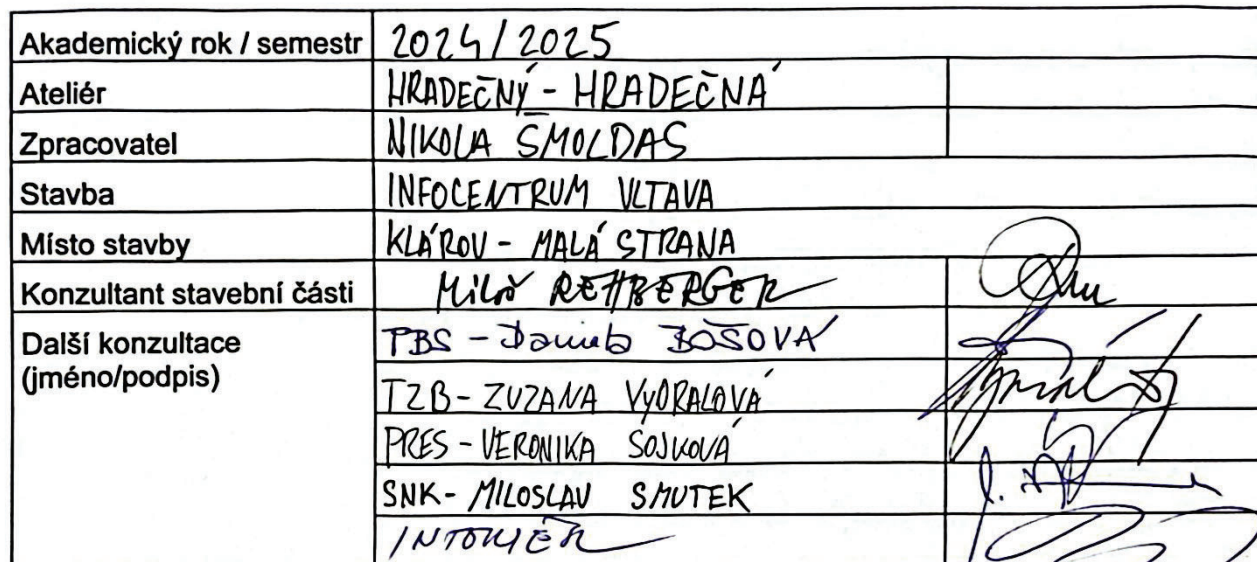 Akademický rok / semestr 2024/2025
Ateliér HRADEČNÝ - HRADEČNÁ
Zpracovatel NIKOLA ŠMOLDAS
Stavba INFOCENTRUM VLTAVA
Místo stavby KLÁROV - MALÁ STRANA
Konzultant stavební části Miloš REHBERGER
Další konzultace PBS - Daniela BOŠOVÁ
(jméno/podpis)
TZB - ZUZANA VYORALOVÁ
PRES - VERONIKA SOJKOVÁ
SNK - MILOSLAV SMUTEK
INTERIÉR